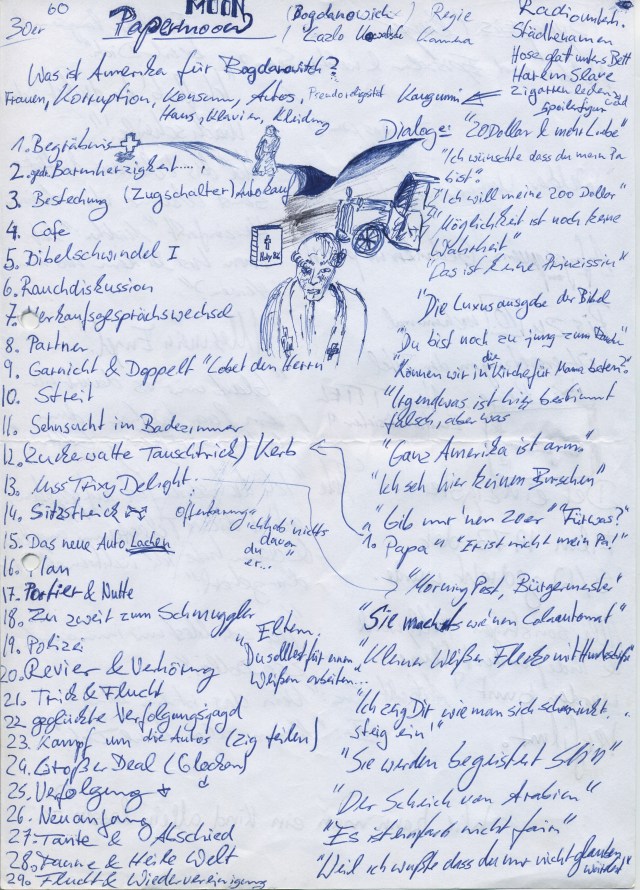 60
30er
MOON
Papermoon
(Bogdanowich) Regie
Laszlo Kowalski Kamera
Was ist Amerika für Bogdanowitch?
Frauen, Korruption, Konsum, Autos,
Haus, Klavier, Kleidung
Kaugummi
Städtenamen
Harlem Slave
Zigarren leden-
spoilerfigur
1. Begräbnis
2. Barmherzigkeit....
3. Bestechung (Zugschalter) Autokauf
4. Cafe
5. Bibelschwindel I
6. Rauchdiskussion
7. Verkaufsgesprächswechsel
8. Partner
9. Garnicht & Doppelt "Lobet den Herrn"
10. Streit
11. Sehnsucht im Badezimmer
12. (Zuckerwatte Tauschtrick) Kerb
13. Miss Trixy Delight
14. Sitzstreick
Offenbarung
"ich hab' nichts
davon
du
er..."
15. Das neue Auto Lachen
16. Plan
17. Portier & Nutte
18. Zu zweit zum Schmuggler
19. Polizei
20. Revier & Verhörung
Eltern
"Du solltest für einen
Weißen arbeiten...
21. Trick & Flucht
22. geglückte Verfolgungsjagd
23. Kampf um die Autos (Zig teilen)
24. Großer Deal (Glocken)
25. Verfolgung
26. Neuanfang
27. Tante & Abschied
28. Heile Welt
29. Flucht & Wiedervereinigung
Dialoge: "20 Dollar & mehr Liebe"
"Ich wünschte dass du mein Pa
bist"
"Ich will meine 200 Dollar"
"Möglichkeit ist noch keine
Wahrheit"
"Das ist keine Prinzissin"
"Die Luxusausgabe der Bibel
"Du bist noch zu jung zum
"Können wir in die Kirche für Mama beten?"
"Irgendwas ist hier bestimmt
falsch, aber was
"Ganz Amerika ist arm"
"Ich seh hier keinen Burschen"
"Gib mir 'nen 20er" "Für was?"
1. Papa" "Er ist nicht mein Pa!"
"Morning Post, Bürgermeister"
"Sie macht's wie'nen Colaautomat"
"Kleiner Weißer Flecke mit
"Ich zeig Dir wie man sich schminkt..
steig ein!"
"Sie werden begeistert sein"
"Der Scheich von Arabien"
"Es ist einfach nicht fair"
"Weil ich wußte dass du mir nicht glauben
würdest"